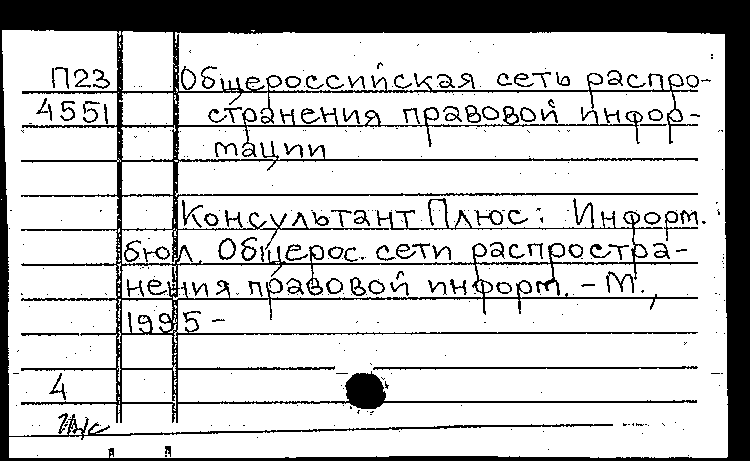 П23 Общероссийская сеть распро-
4551 странения правовой инфор-
мации
Консультант Плюс: Информ.
бюл. Общерос. сети распростра-
нения правовой информ. - М.,
1995 -
4